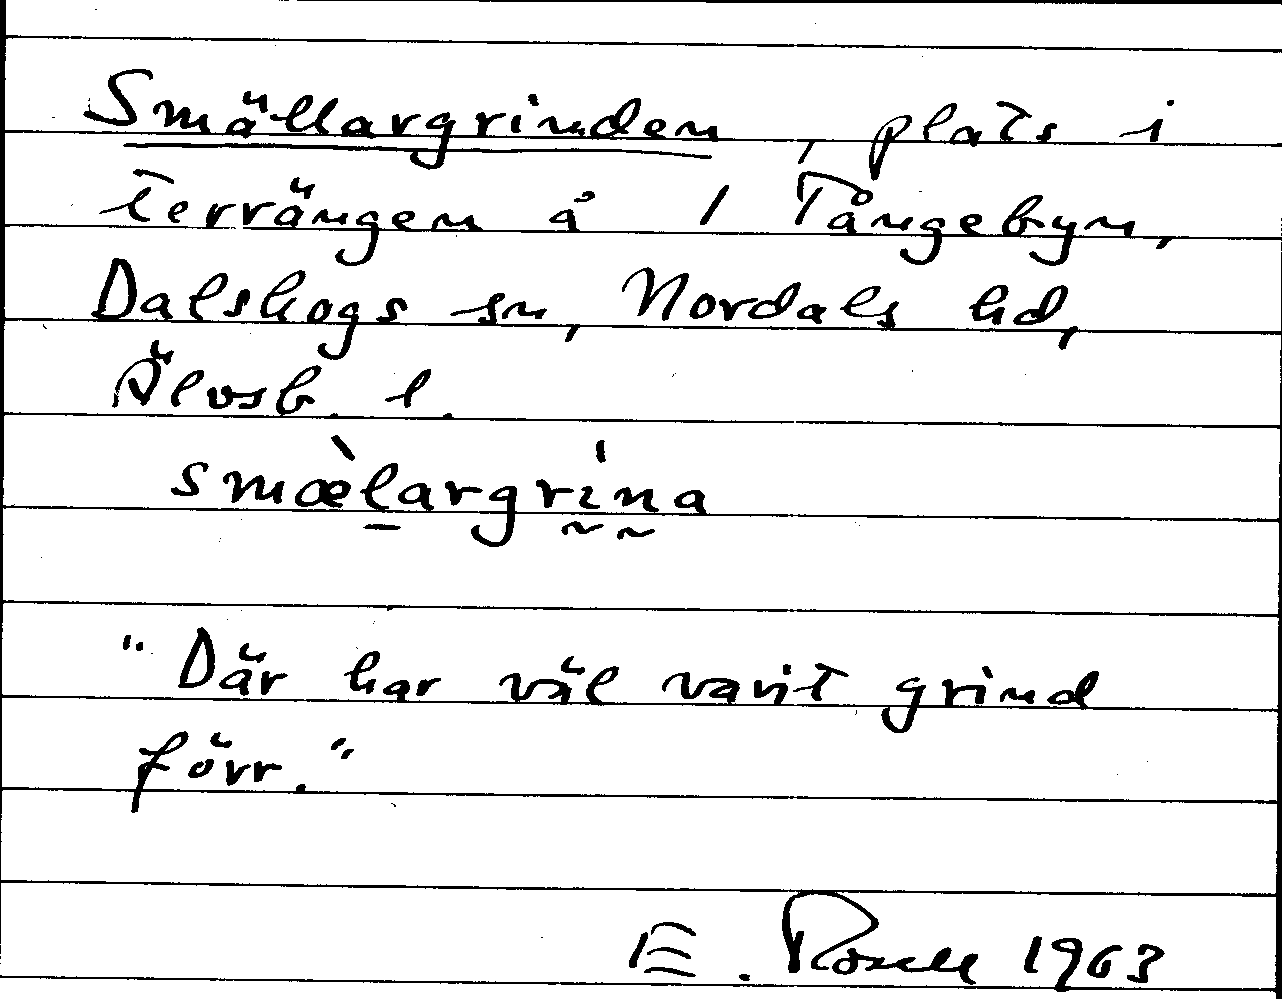 Smällargrinden, plats i
terrängen å 1 Tångebyn,
Dalskogs sn, Nordals hd,
Älvsb. l.
smæ̀l̠argrı̰́n̰a
"Där har väl varit grind
förr."
E. Rosell 1963